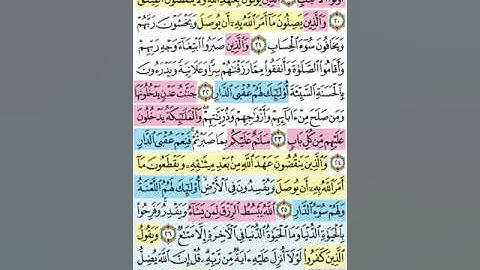 أُوْلُوا۟ ٱلْأَلْبَٰبِ ۝١٩ ٱلَّذِينَ يُوفُونَ بِعَهْدِ ٱللَّهِ وَلَا يَنقُضُونَ ٱلْمِيثَٰقَ
۝٢٠ وَٱلَّذِينَ يَصِلُونَ مَآ أَمَرَ ٱللَّهُ بِهِۦٓ أَن يُوصَلَ وَيَخْشَوْنَ رَبَّهُمْ
وَيَخَافُونَ سُوٓءَ ٱلْحِسَابِ ۝٢١ وَٱلَّذِينَ صَبَرُوا۟ ٱبْتِغَآءَ وَجْهِ رَبِّهِمْ
وَأَقَامُوا۟ ٱلصَّلَوٰةَ وَأَنفَقُوا۟ مِمَّا رَزَقْنَٰهُمْ سِرًّا وَعَلَانِيَةً وَيَدْرَءُونَ
بِٱلْحَسَنَةِ ٱلسَّيِّئَةَ أُو۟لَٰٓئِكَ لَهُمْ عُقْبَى ٱلدَّارِ ۝٢٢ جَنَّٰتُ عَدْنٍ يَدْخُلُونَهَا
وَمَن صَلَحَ مِنْ ءَابَآئِهِمْ وَأَزْوَٰجِهِمْ وَذُرِّيَّٰتِهِمْ وَٱلْمَلَٰٓئِكَةُ يَدْخُلُونَ
عَلَيْهِم مِّن كُلِّ بَابٍ ۝٢٣ سَلَٰمٌ عَلَيْكُم بِمَا صَبَرْتُمْ فَنِعْمَ عُقْبَى ٱلدَّارِ
۝٢٤ وَٱلَّذِينَ يَنقُضُونَ عَهْدَ ٱللَّهِ مِنۢ بَعْدِ مِيثَٰقِهِۦ وَيَقْطَعُونَ مَآ
أَمَرَ ٱللَّهُ بِهِۦٓ أَن يُوصَلَ وَيُفْسِدُونَ فِى ٱلْأَرْضِ أُو۟لَٰٓئِكَ لَهُمُ ٱللَّعْنَةُ
وَلَهُمْ سُوٓءُ ٱلدَّارِ ۝٢٥ ٱللَّهُ يَبْسُطُ ٱلرِّزْقَ لِمَن يَشَآءُ وَيَقْدِرُ وَفَرِحُوا۟
بِٱلْحَيَوٰةِ ٱلدُّنْيَا وَمَا ٱلْحَيَوٰةُ ٱلدُّنْيَا فِى ٱلْءَاخِرَةِ إِلَّا مَتَٰعٌ ۝٢٦ وَيَقُولُ
ٱلَّذِينَ كَفَرُوا۟ لَوْلَآ أُنزِلَ عَلَيْهِ ءَايَةٌ مِّن رَّبِّهِۦ قُلْ إِنَّ ٱللَّهَ يُضِلُّ